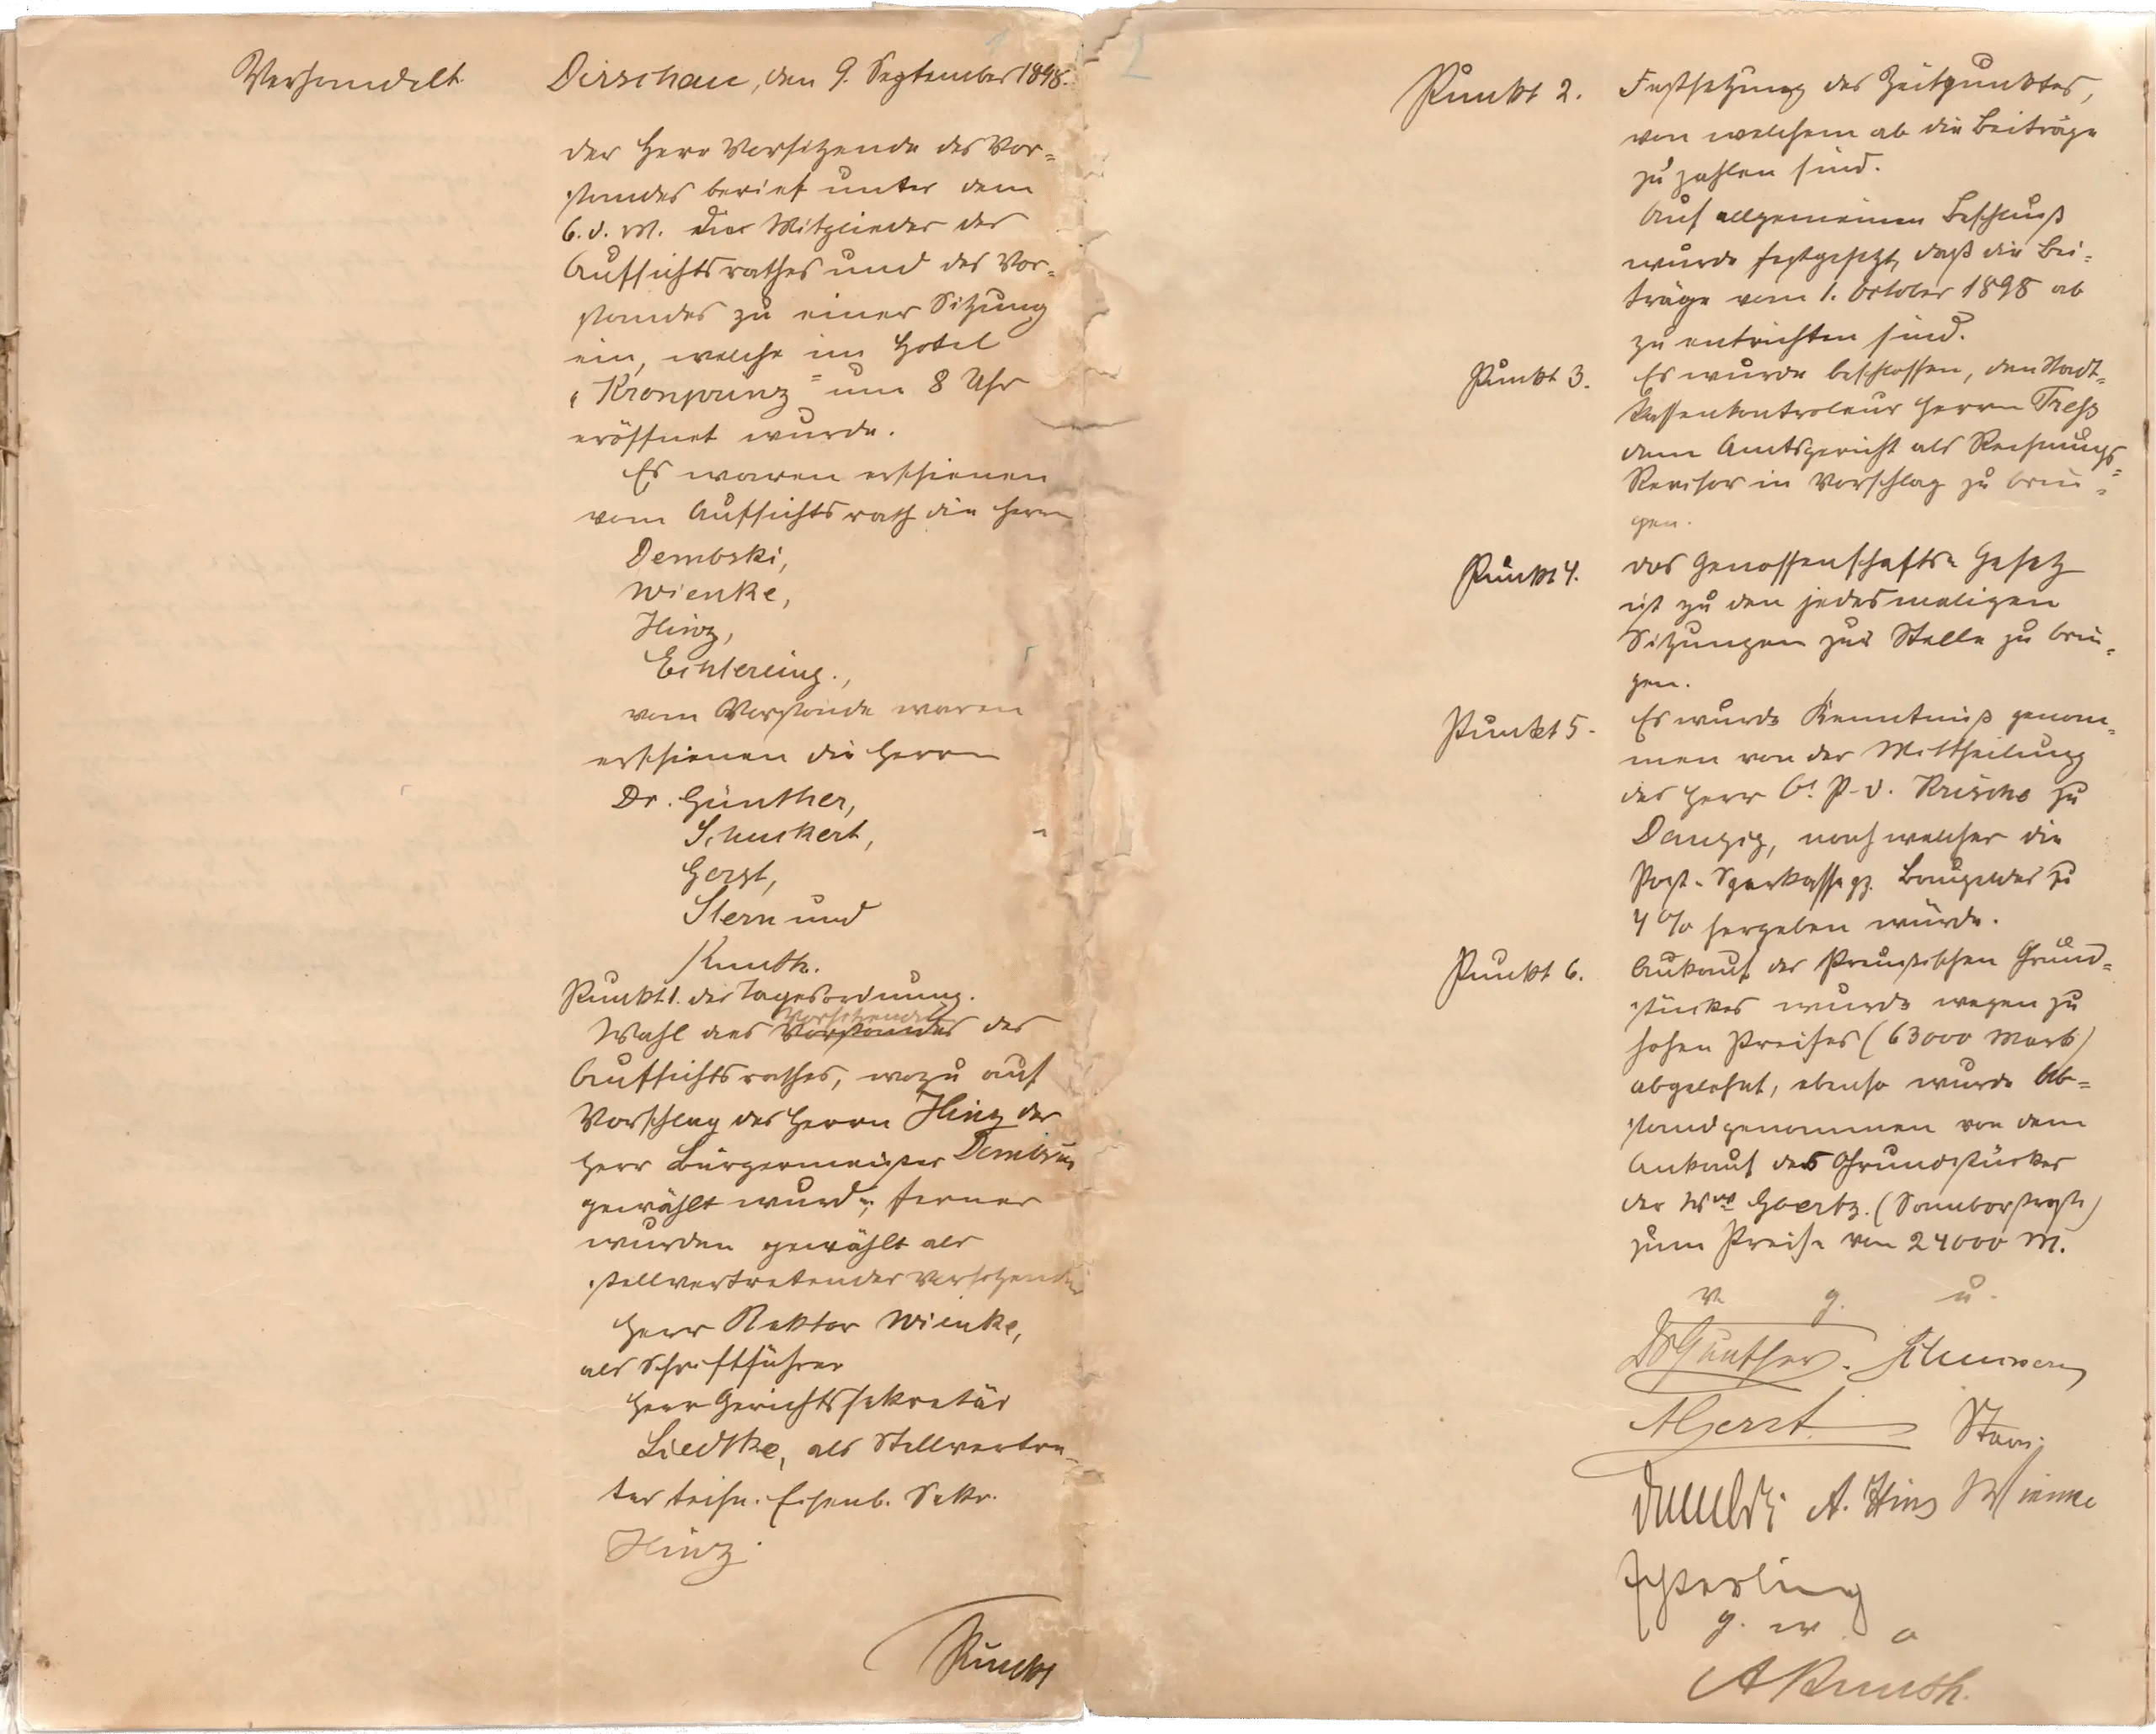 Verhandelt. Dirschau, den 9. September 1898.
Der Herr Vorsitzende des Vor=
standes berief unter dem
6. d. M. die Mitglieder des
Aufsichtsrathes und des Vor=
standes zu einer Sitzung
ein, welche im Hotel
"Kronprinz" um 8 Uhr
eröffnet wurde.
Es waren erschienen
vom Aufsichtsrath die Herrn
Dembski,
Wienke,
Hinz,
Echterling.,
vom Vorstande waren
erschienen die Herrn
Dr. Günther,
Schuckert,
Gerst,
Stern und
Knuth.
Punkt 1. der Tagesordnung.
Vorsitzenden
Wahl des Vorstandes des
Aufsichtsrathes, wozu auf
Vorschlag des Herrn Hinz der
Herr Bürgermeister Dembski
gewählt wurde, ferner
wurden gewählt als
stellvertretender Vorsitzender
Herr Rektor Wienke,
als Schriftführer
Herr Gerichtssekretär
Liedtke, als Stellvertre=
ter techn. Eisenb. Sekr.
Hinz.
Punkt
Punkt 2. Festsetzung des Zeitpunktes,
von welchem ab die Beiträge
zu zahlen sind.
Auf allgemeinen Beschluß
wurde festgesetzt, daß die Bei=
träge vom 1. October 1898 ab
zu entrichten sind.
Punkt 3. Es wurde beschlossen, den Stadt=
kassenkontroleur Herrn Treß
dem Amtsgericht als Rechnungs=
Revisor in Vorschlag zu brin=
gen.
Punkt 4. Das Genossenschafts=Gesetz
ist zu den jedesmaligen
Sitzungen zur Stelle zu brin=
gen.
Punkt 5. Es wurde Kenntniß genom=
men von der Mittheilung
des Herr O. P. D. zu
Danzig, nach welcher die
Post=Sparkasse Baugelder zu
4 % hergeben würde.
Punkt 6. Ankauf des Preußischen Grund=
stückes wurde wegen zu
hohen Preises (63000 Mark)
abgelehnt, ebenso wurde Ab=
stand genommen von dem
Ankauf des Grundstückes
der Wwe Goertz. (Sambor straße)
zum Preise von 24000 M.
v. g. u.
Dr Günther. Schuckert
A Gerst. Stern.
Dembski A. Hinz Wienke
Echterling
g. w. o
A Knuth.